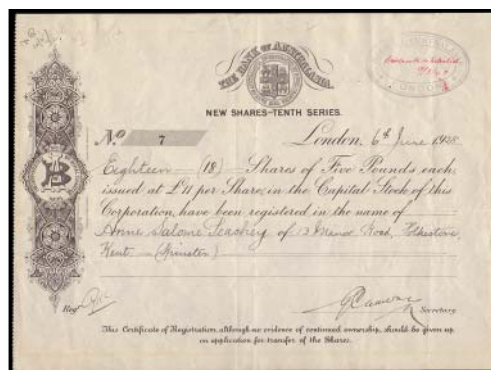 THE BANK OF AUSTRALASIA.
LONDON
NEW SHARES-TENTH SERIES.
No. 7 London, 6th June 1928
Eighteen (18) Shares of Five Pounds each,
issued at £11 per Share, in the Capital Stock of this
Corporation, have been registered in the name of
Anne Salome of 13 Road, Folkestone,
Kent (Spinster)
Regd
Secretary
This Certificate of Registration, although no evidence of continued ownership, should be given up
on application for transfer of the Shares.